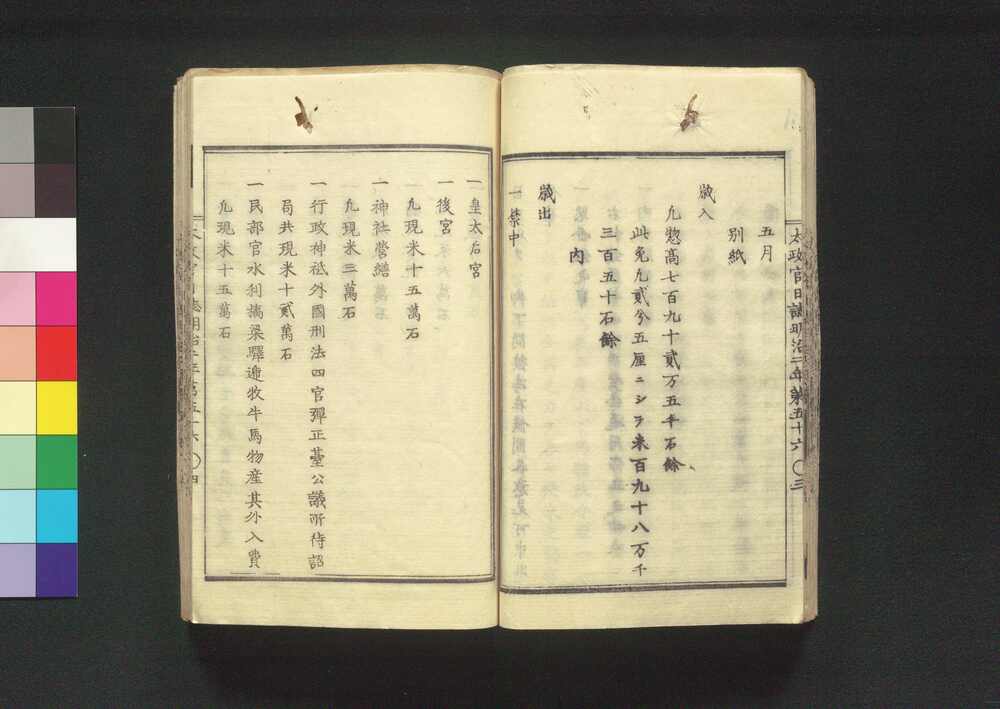 太政官日誌明治二年第五十六 〇三
五月
別紙
歳入
凢惣高七百九十貳万五千石餘
此免凢貳兮五厘ニシヲ米百九十八万千
三百五十石餘
内
歳出
一禁中
一皇太后宮
一後宮
凢現米十五萬石
一神社營繕
凢現米三萬石
一行政神祗外國刑法四官彈正䑓公議所待詔
局共現米十貳萬石
一民部官水利橋梁驛逓牧牛馬物産其外入費
凢現米十五萬石